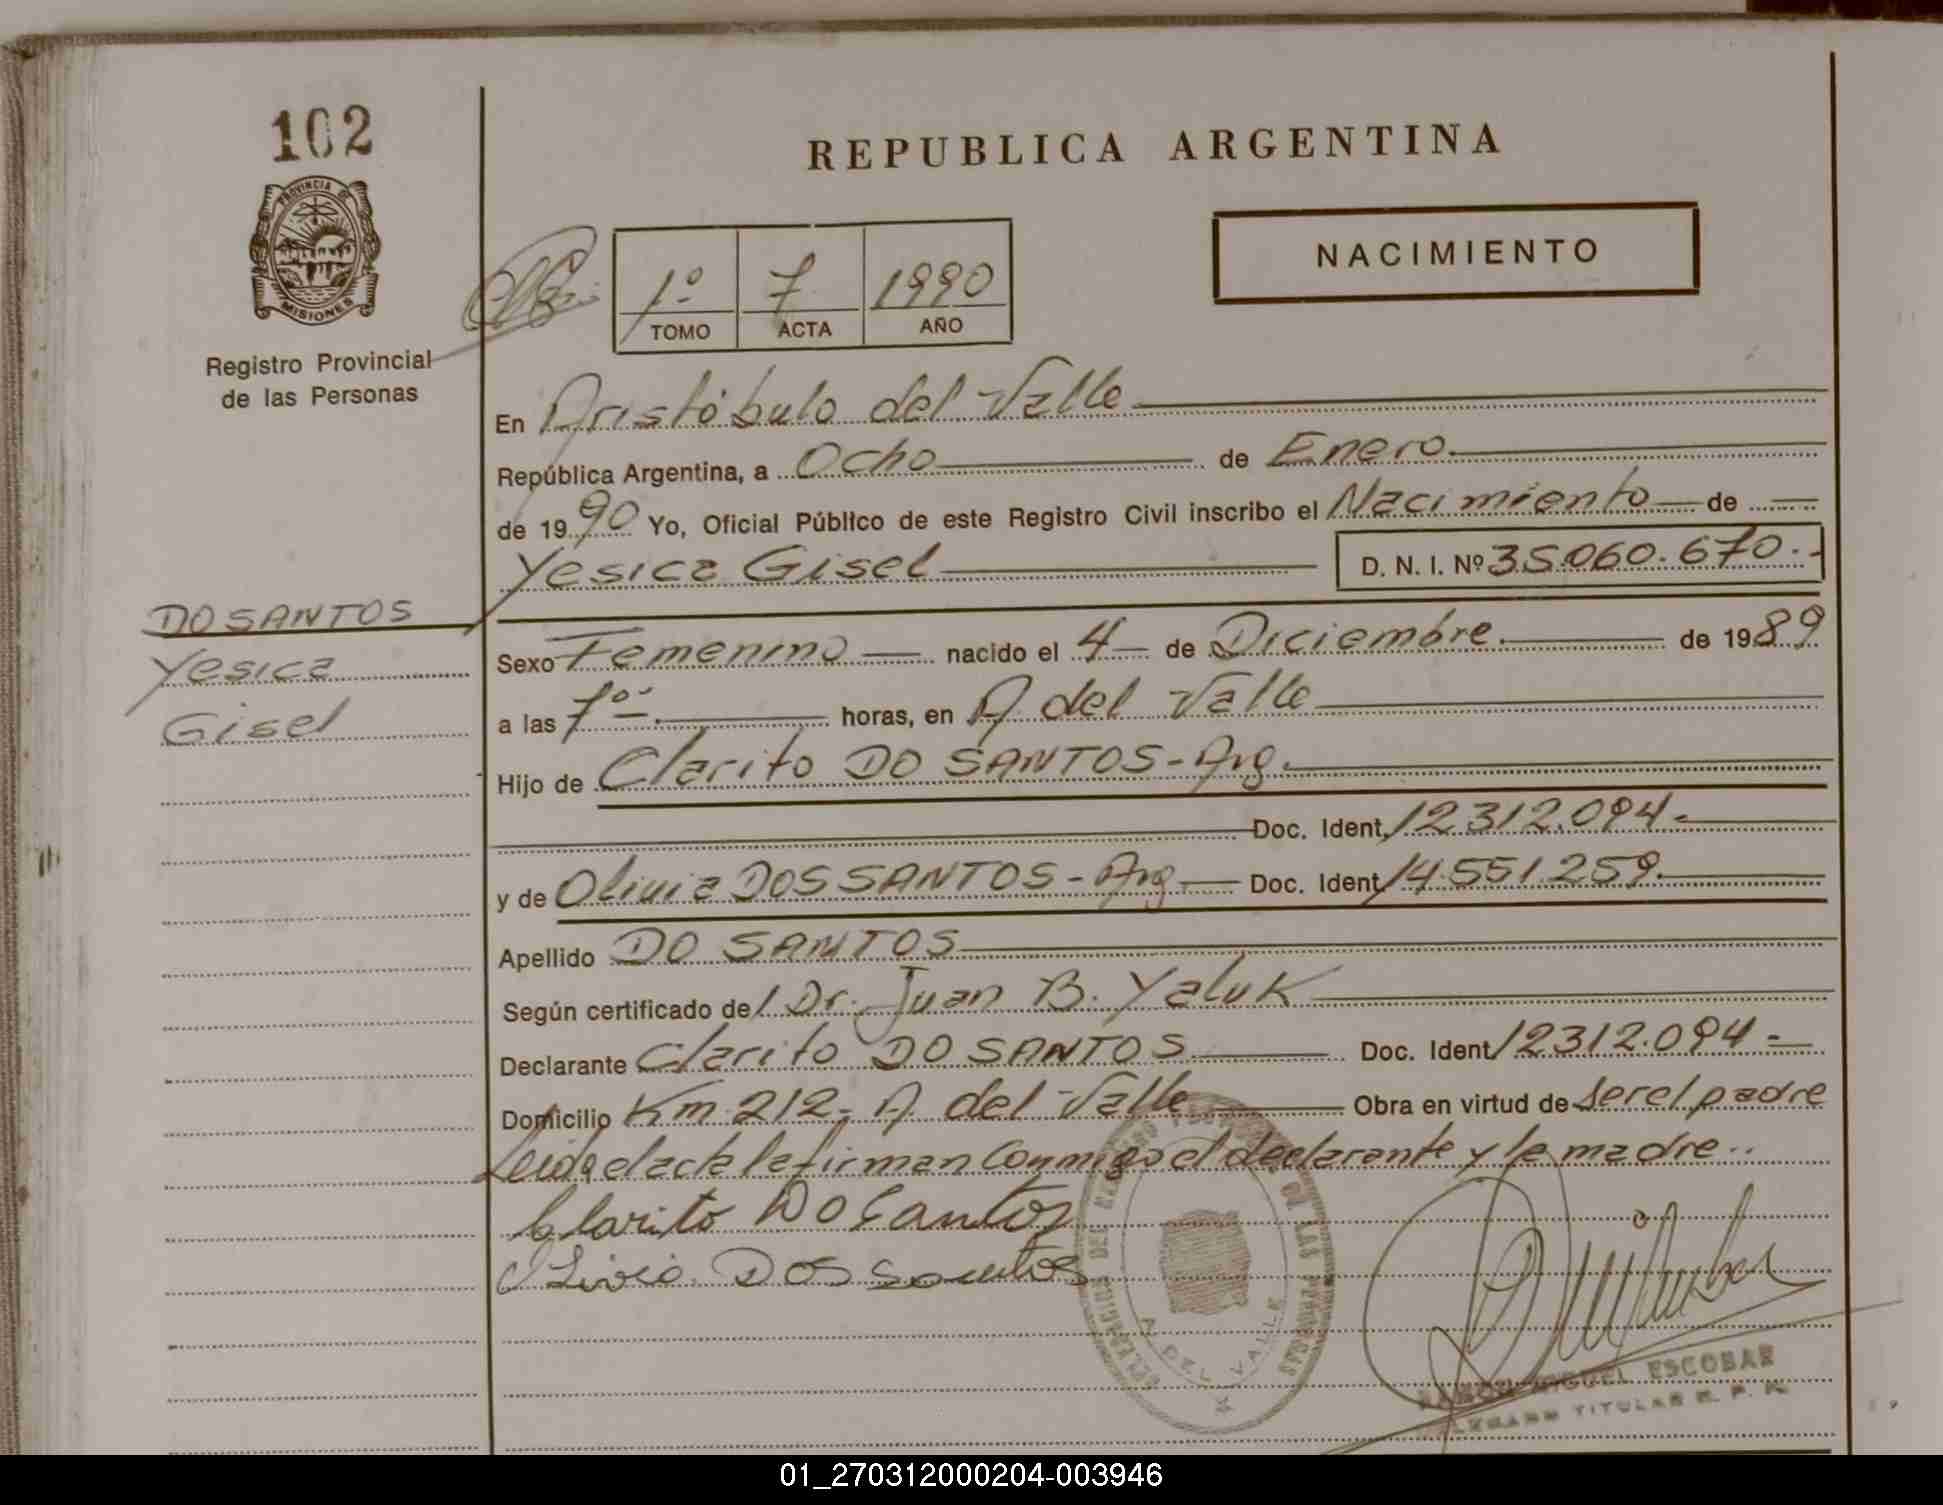 102
PROVINCIA DE
MISIONES
Registro Provincial
de las Personas
REPUBLICA ARGENTINA
NACIMIENTO
1º 7 1990
TOMO ACTA AÑO
En Aristóbulo del Valle
República Argentina, a Ocho de Enero
de 1990 Yo, Oficial Público de este Registro Civil inscribo el Nacimiento de
Yesica Gisel D. N. I. Nº 35.060.670.-
DO SANTOS
Yesica
Gisel
Sexo Femenino nacido el 4 de Diciembre. de 1989
a las 7º horas, en A. del Valle
Hijo de Clarito DO SANTOS - Arg.
Doc. Ident. 12312.094-
y de Olivia DOS SANTOS - Arg. Doc. Ident. 14.551.259.
Apellido DO SANTOS
Según certificado del Dr. Juan B. Yaluk
Declarante Clarito DO SANTOS Doc. Ident. 12312.094-
Domicilio Km 212- A. del Valle Obra en virtud de ser el padre
Leida el acta la firman Conmigo el declarante y la madre..
Clarito Do Santos
Olivia Dos santos
A. DEL VALLE
RAMON MIGUEL ESCOBAR
TITULAR R. P. P.
01_270312000204-003946